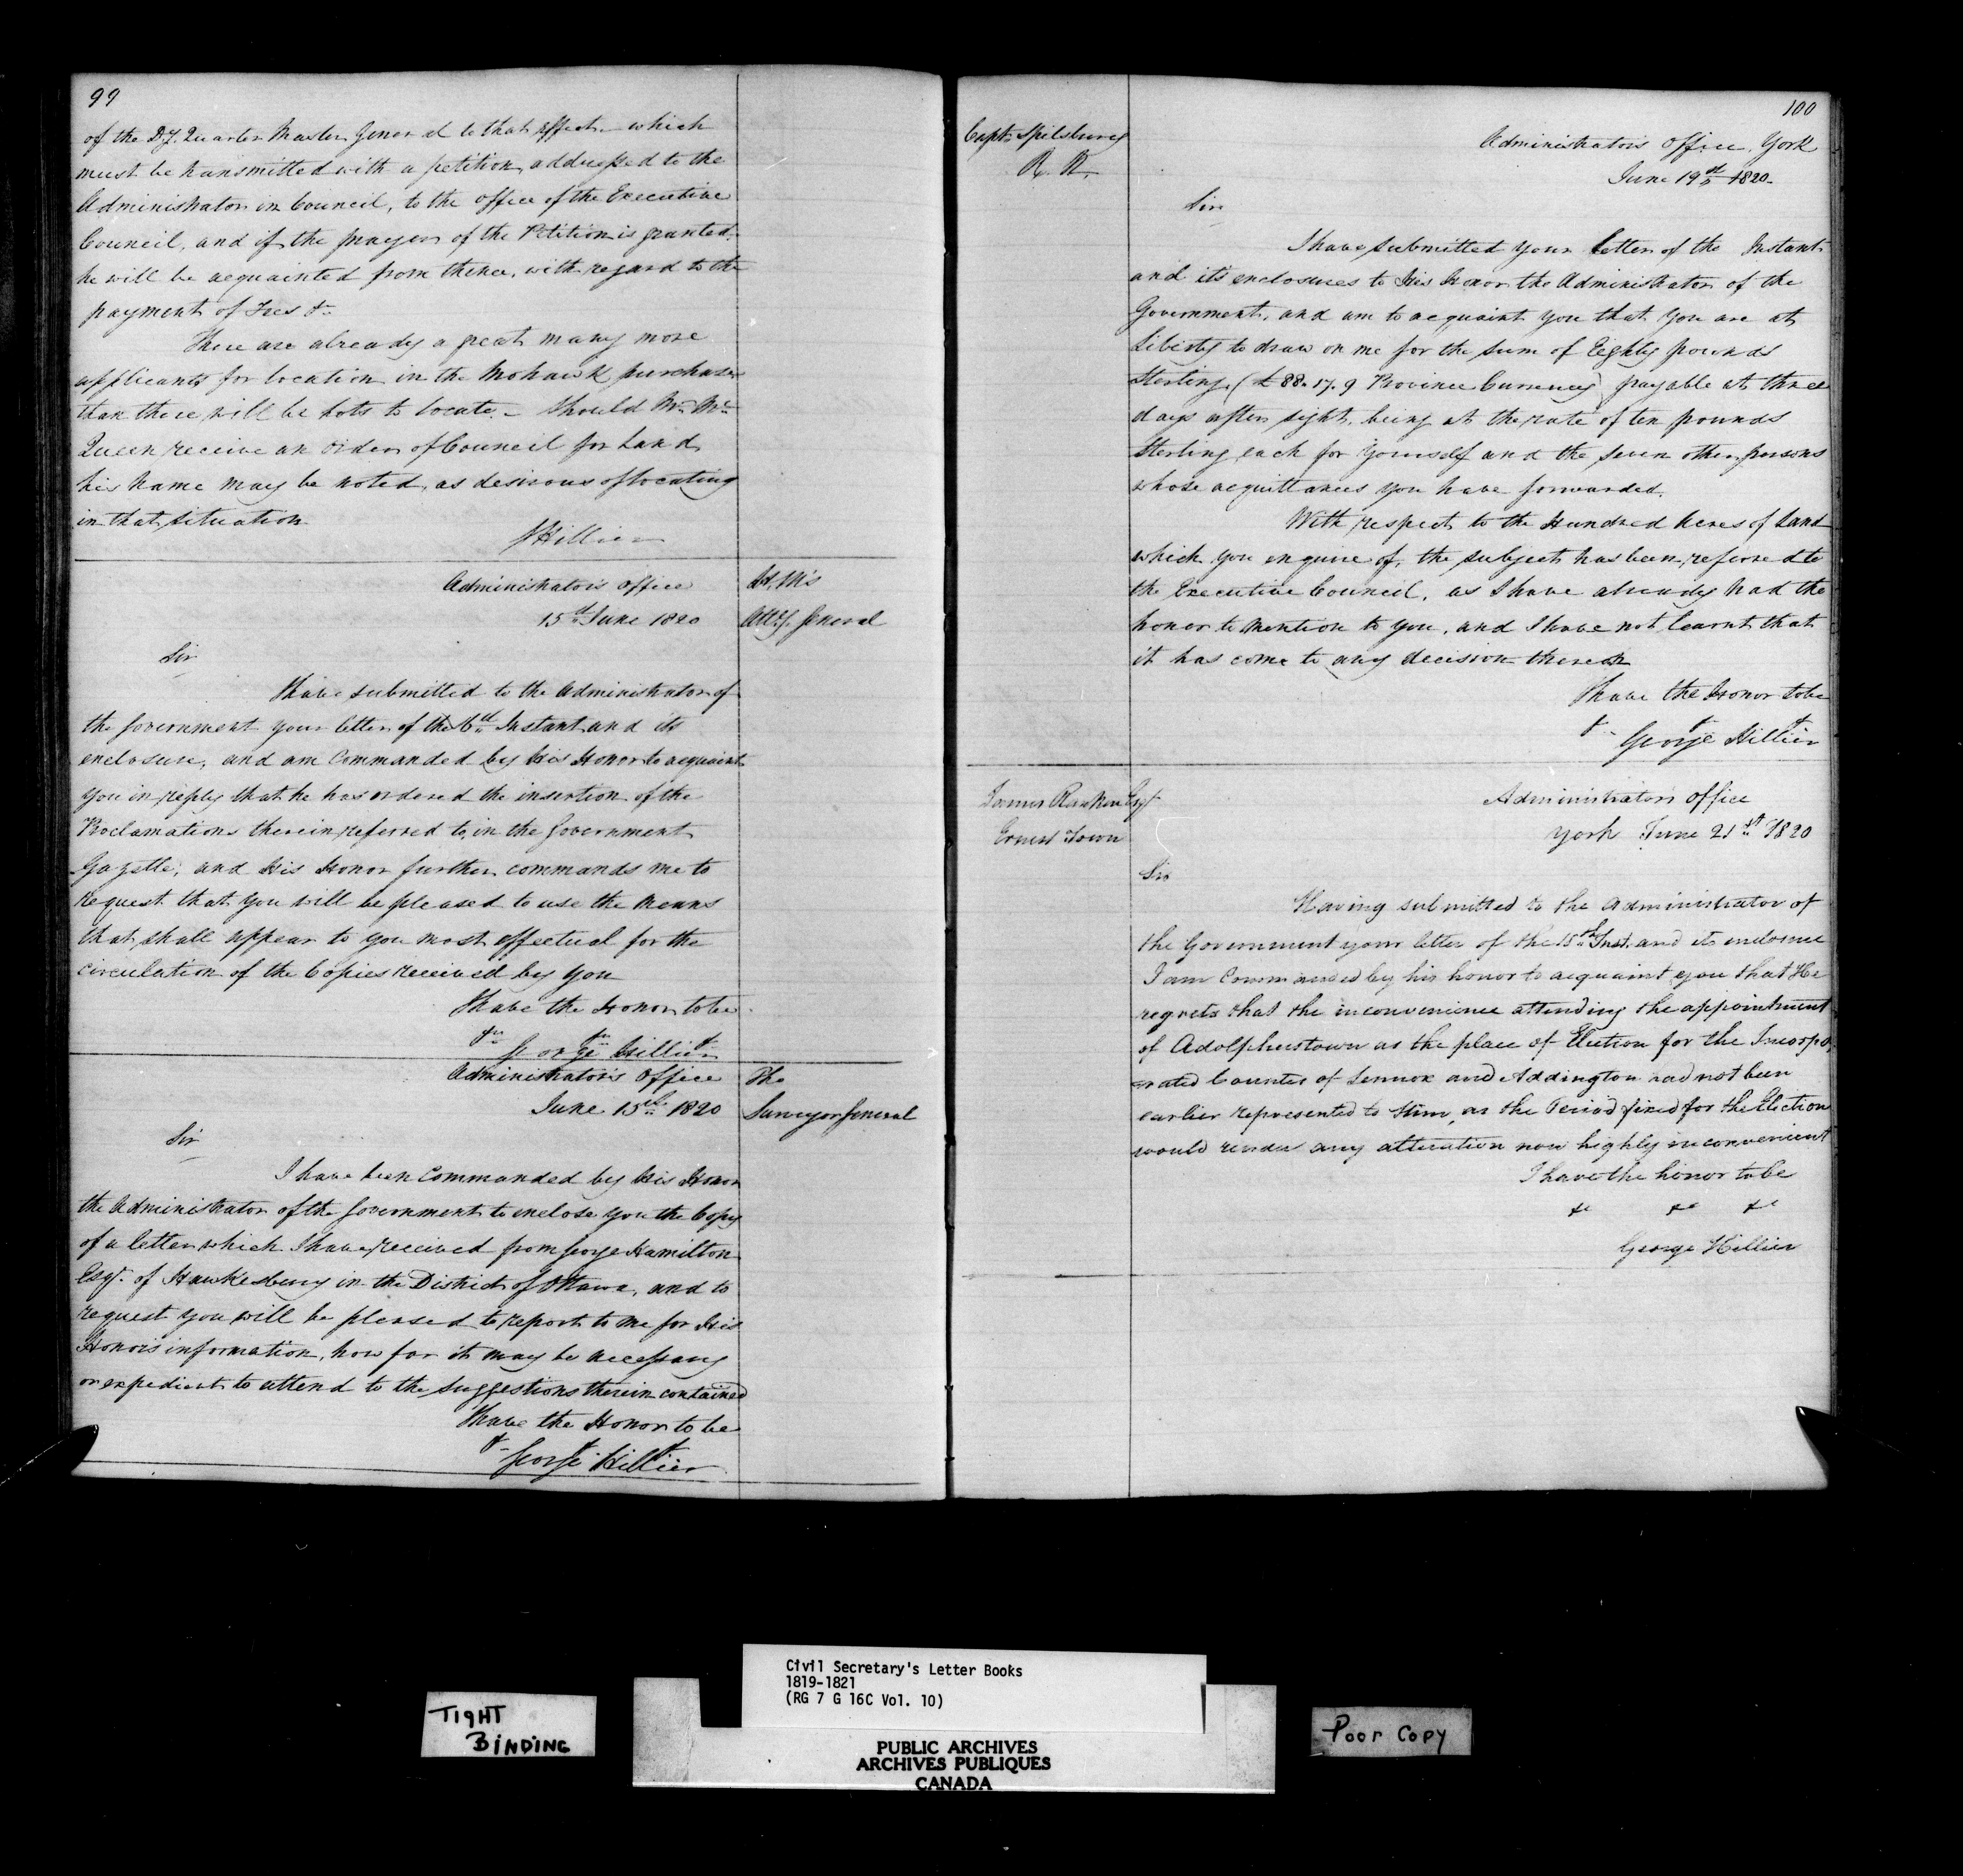 99
of the D.y. Quarter Master General to that effect - which
must be transmitted with a petition, addressed to the
Administrator in Council, to the office of the Executive
Council, and if the prayer of the Petition is granted,
he will be acquainted from thence, with regard to the
payment of Fees &c
There are already a great many more
applicants for location in the Mohawk purchase
than there will be Lots to locate. - Should Mr. Mc
Queen receive an order of Council for Land
his name may be noted, as desirous of locating
in that situation
GHillier
Administrator's Office
15th June 1820
H. M's
Atty. General
Sir
I have submitted to the Administrator of
the Government your letter of the 6th Instant and its
enclosure, and am Commanded by His Honor to acquaint
you in reply that he has ordered the insertion of the
Proclamations therein referred to, in the Government
Gazette; and His Honor further commands me to
request that you will be pleased to use the means
that shall appear to you most effectual for the
circulation of the Copies received by you
I have the Honor to be
&c &c &c
George Hillier
Administrator's Office
June 15th 1820
The
Surveyor General
Sir
I have been Commanded by His Honor
the Administrator of the Government to enclose you the Copy
of a letter which I have received from George Hamilton
Esqr. of Hawkesbury in the District of Ottawa, and to
request you will be pleased to report to me for His
Honor's information, how far it may be necessary
or expedient to attend to the suggestions therein contained
I have the Honor to be
&c &c &c
George Hillier
100
Capt. Spilsbury
R. N.
Administrator's Office, York
June 19th 1820.
Sir
I have submitted your letter of the Instant
and it's enclosures to His Honor the Administrator of the
Government, and am to acquaint you that you are at
Liberty to draw on me for the sum of Eighty pounds
Sterling (£88. 17. 9 Province Currency) payable at three
days after sight, being at the rate of ten pounds
Sterling each for yourself and the seven other persons
whose acquittances you have forwarded.
With respect to the Hundred Acres of Land
which you enquire of, the subject has been referred to
the Executive Council, as I have already had the
honor to mention to you, and I have not learnt that
it has come to any decision thereon
I have the Honor to be
&c &c &c
George Hillier
James Rankin Esqr.
Ernest Town
Administrator's Office
York June 21st 1820
Sir
Having submitted to the Administrator of
the Government your letter of the 15th Inst. and its enclosure
I am Commanded by his honor to acquaint you that He
regrets that the inconvenience attending the appointment
of Adolphustown as the place of Election for the Incorpo-
rated Counties of Lennox and Addington had not been
earlier represented to Him, as the Period fixed for the Election
would render any alteration now highly inconvenient
I have the honor to be
&c &c &c
George Hillier
Civil Secretary's Letter Books
1819-1821
(RG 7 G 16C Vol. 10)
TIGHT
BINDING
PUBLIC ARCHIVES
ARCHIVES PUBLIQUES
CANADA
Poor Copy